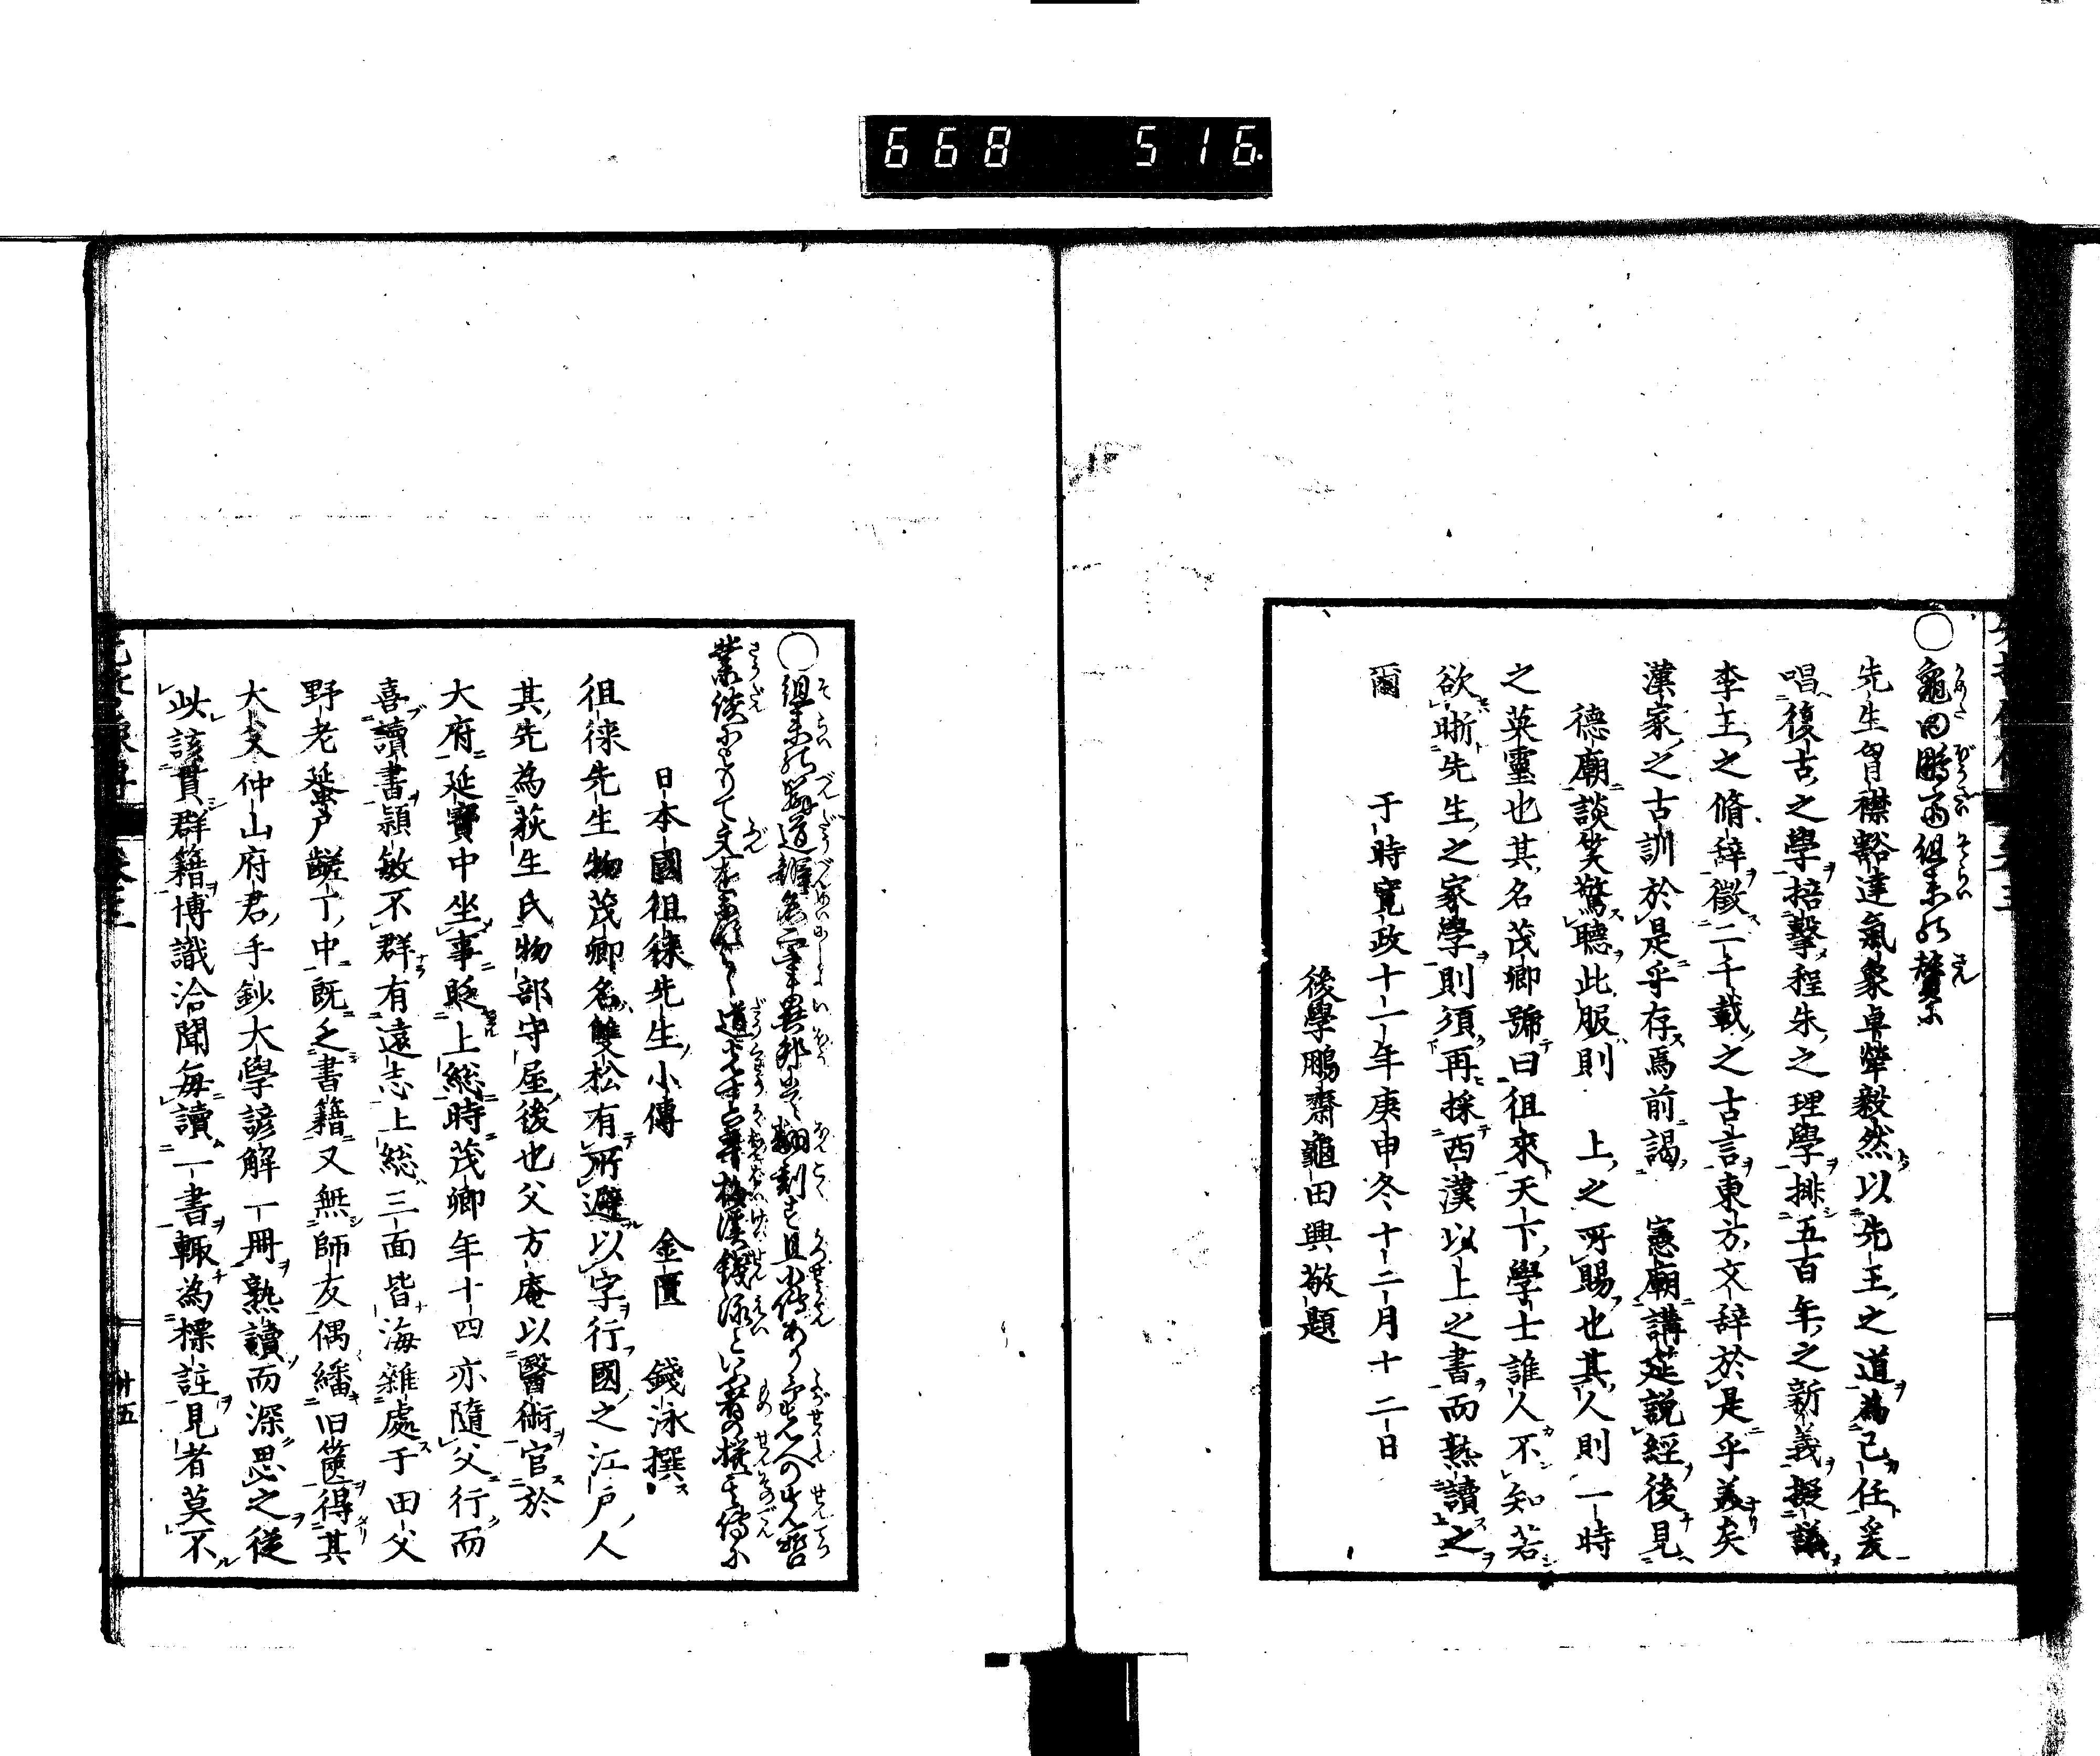 668 516
○龜田鵬斎徂来の賛に
先生胷襟豁達氣象卓犖毅然以先王之道為己任爰
唱復古之學掊擊程朱之理學排五百年之新義擬議
李王之脩辞徴二千載之古言東方文辞於是乎美矣
漢家之古訓於是乎存焉前謁 憲廟講莚説經後見
德廟談笑驚聽此服則 上之所賜也其人則一時
之英靈也其名茂卿號曰徂來天下學士誰人不知若
欲晰先生之家學則須再採西漢以上之書而熟讀之
爾 于時寛政十二年庚申冬十二月十二日
後學鵬齋龜田興敬題
○徂来の辯道辯名の書異邦にて翻刻す且小傳あり
業談にもりて文を
日本國徂徠先生小傳 金匱 錢泳撰
徂徠先生物茂卿名雙松有所避以字行國之江戸人
其先為荻生氏物部守屋後也父方庵以醫術官於
大府延寶中坐事貶上総時茂卿年十四亦隨父行而
喜讀書頴敏不群有遠志上総三面皆海雜處于田父
野老蜑戸鹺丁中既乏書籍又無師友偶繙旧篋得其
大父仲山府君手鈔大學諺解一冊熟讀而深思之従
此該貫群籍博識洽聞每讀一書輒為標註見者莫不
卄五